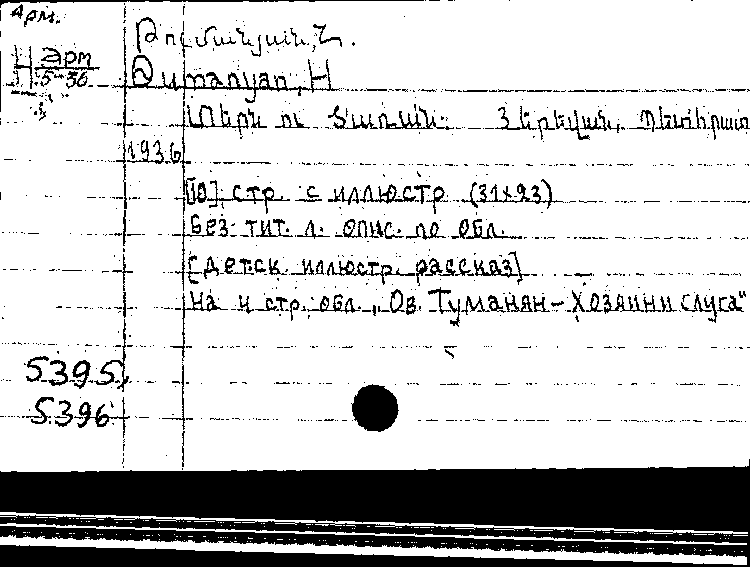 Арм.
Թումանյան, Հ.
Н Арм
5-36
Dumanyan, H
Տերն ու Ծառան. Երեվան, Պետհրատ
1936
[10] стр. с иллюстр (31×23)
Без тит. л. опис. по обл.
[детск. иллюстр. рассказ]
На 4 стр. обл. „Ов. Туманян – Хозяин и слуга"
5395,
5396